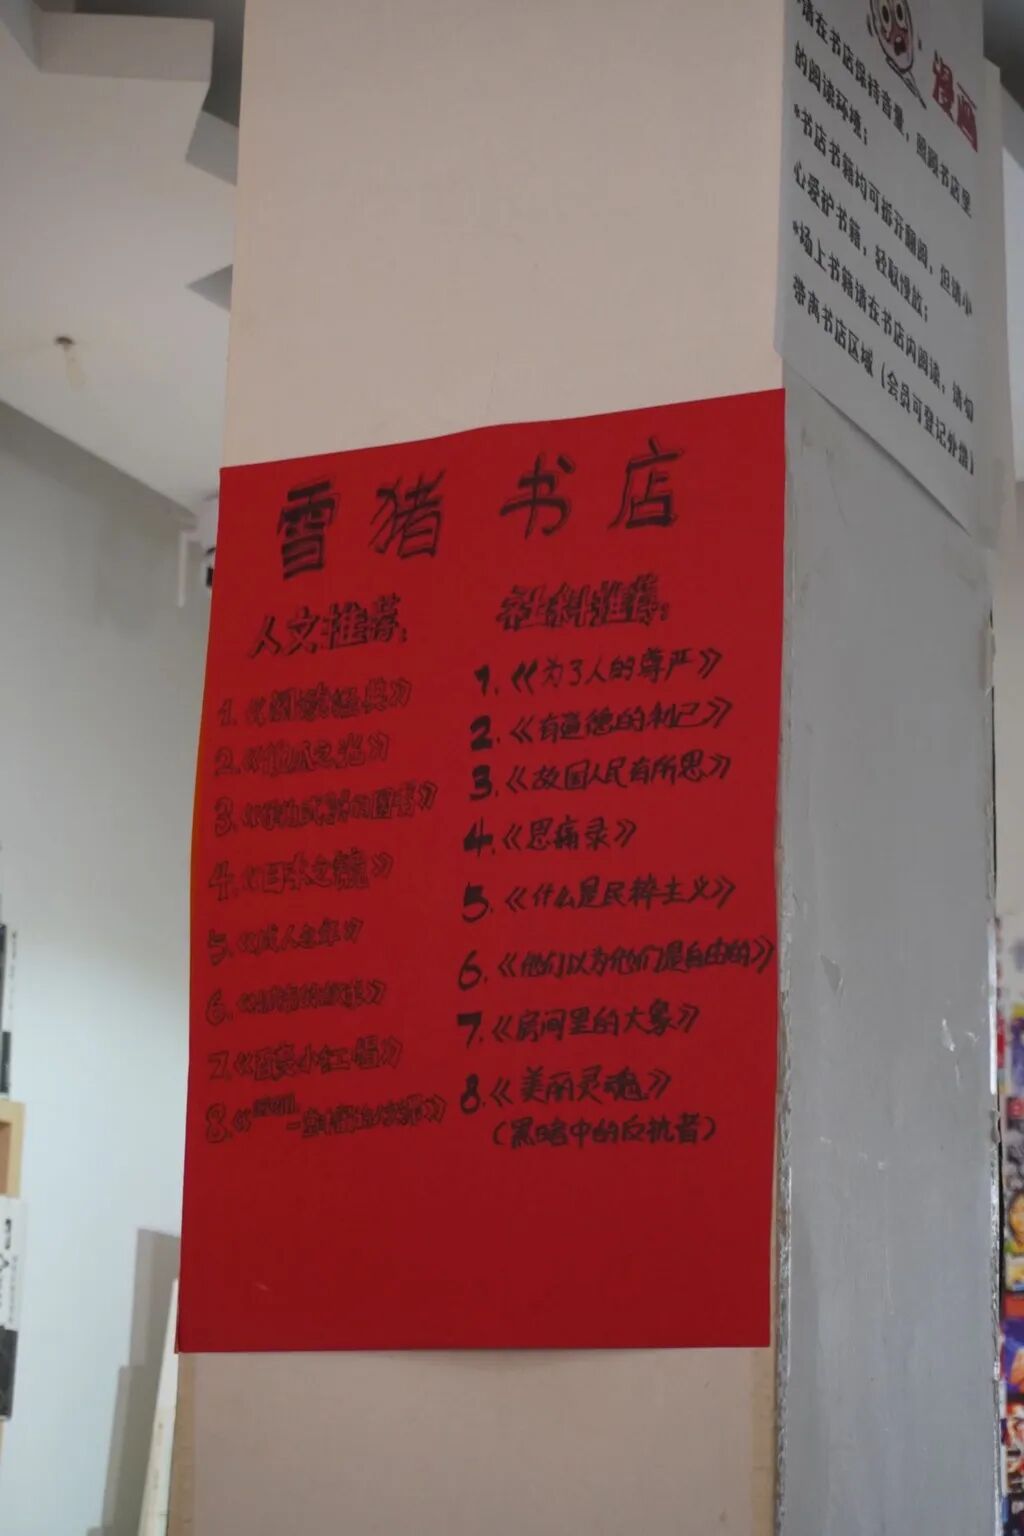 雪猪书店
人文推荐:
1.《阅读经典》
2.《傻瓜之光》
4.《日本之镜》
5.《成人之年》
7.《百变小红帽》
社科推荐:
1.《为了人的尊严》
2.《有道德的利己》
3.《故国人民有所思》
4.《思痛录》
5.《什么是民粹主义》
6.《他们以为他们是自由的》
7.《房间里的大象》
8.《美丽灵魂》
(黑暗中的反抗者)
漫画
请在书店保持音量,照顾书店里
的阅读环境;
*书店书籍均可拆开翻阅,但请小
心爱护书籍,轻取慢放;
*场上书籍请在书店内阅读,请勿
带离书店区域(会员可登记外借)